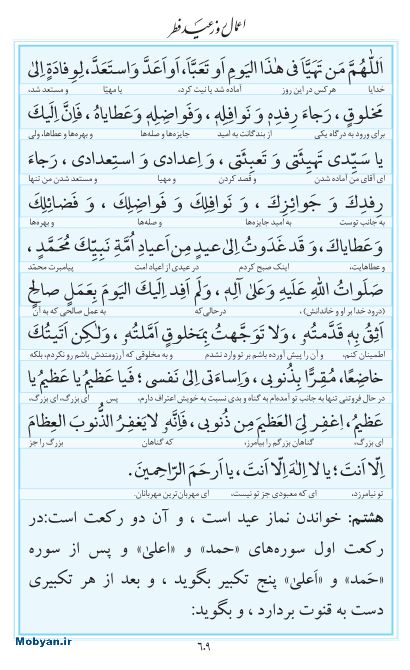 اعمال روز عید فطر
اَللّٰهُمَّ مَن تَهَيَّاَ فى هٰذَا اليَومِ اَو تَعَبَّاَ، اَو اَعَدَّ وَاستَعَدَّ، لِوِفادَةٍ اِلىٰ
خدایا هر کس در این روز آماده شد یا نیت کرد، یا مهیّا و مستعد شد،
مَخلوقٍ، رَجاءَ رِفدِهٖ وَ نَوافِلِهٖ، وَفَواضِلِهٖ وَعَطاياهُ، فَاِنَّ اِلَيكَ
برای ورود به درگاه یکی از بندگانت به امید جایزه‌ها و صله‌ها و بهره‌ها و عطاها، ولی
يا سَيِّدى تَهيِئَتى وَ تَعبِئَتى، وَ اِعدادى وَ استِعدادى، رَجاءَ
ای آقای من آماده شدن و قصد کردن و مهیا و مستعد شدن من تنها
رِفدِكَ وَ جَوائِزِكَ، وَ نَوافِلِكَ وَ فَواضِلِكَ، وَ فَضائِلِكَ
به جانب توست به امید جایزه‌ها و صله‌ها و بهره‌ها
وَ عَطاياكَ، وَ قَد غَدَوتُ اِلىٰ عيدٍ مِن اَعيادِ اُمَّةِ نَبِيِّكَ مُحَمَّدٍ،
و عطاهایت، اینک صبح کردم در عیدی از اعیاد امت پیامبرت محمّد
صَلَواتُ اللهِ عَلَيهِ وَعَلىٰ آلِهٖ، وَلَم اَفِد اِلَيكَ اليَومَ بِعَمَلٍ صالِحٍ
(درود خدا بر او و خاندانش)، درحالی‌که به عمل صالحی که به آن
اَثِقُ بِهٖ قَدَّمتُهُ، وَلا تَوَجَّهتُ بِمَخلوقٍ اَمَّلتُهُ، وَلٰكِن اَتَيتُكَ
اطمینان کنم، و آن را پیش آورده باشم بر تو وارد نشدم و به مخلوقی که آرزومندش باشم رو نکردم، بلکه
خاضِعًا، مُقِرًّا بِذُنوبى، وَاِساءَتى اِلىٰ نَفسى؛ فَيا عَظيمُ يا عَظيمُ يا
در حال فروتنی تنها به جانب تو آمده‌ام به گناه و بدی نسبت به خویش اعتراف دارم، پس ای بزرگ، ای بزرگ،
عَظيمُ، اِغفِر لِىَ العَظيمَ مِن ذُنوبى، فَاِنَّهُ لا يَغفِرُ الذُّنوبَ العِظامَ
ای بزرگ، گناهان بزرگم را بیامرز، که گناهان بزرگ را جز
اِلّا اَنتَ؛ يا لا اِلٰهَ اِلّا اَنتَ، يا اَرحَمَ الرّاحِمينَ.
تو نیامرزد، ای که معبودی جز تو نیست، ای مهربان‌ترین مهربانان.
هشتم: خواندن نماز عید است ، و آن دو رکعت است:در
رکعت اول سوره‌های «حمد» و «اعلیٰ» و پس از سوره
«حَمد» و «اَعلیٰ» پنج تکبیر بگوید ، و بعد از هر تکبیری
دست به قنوت بردارد ، و بگوید:
۶۰۹
Mobyan.ir